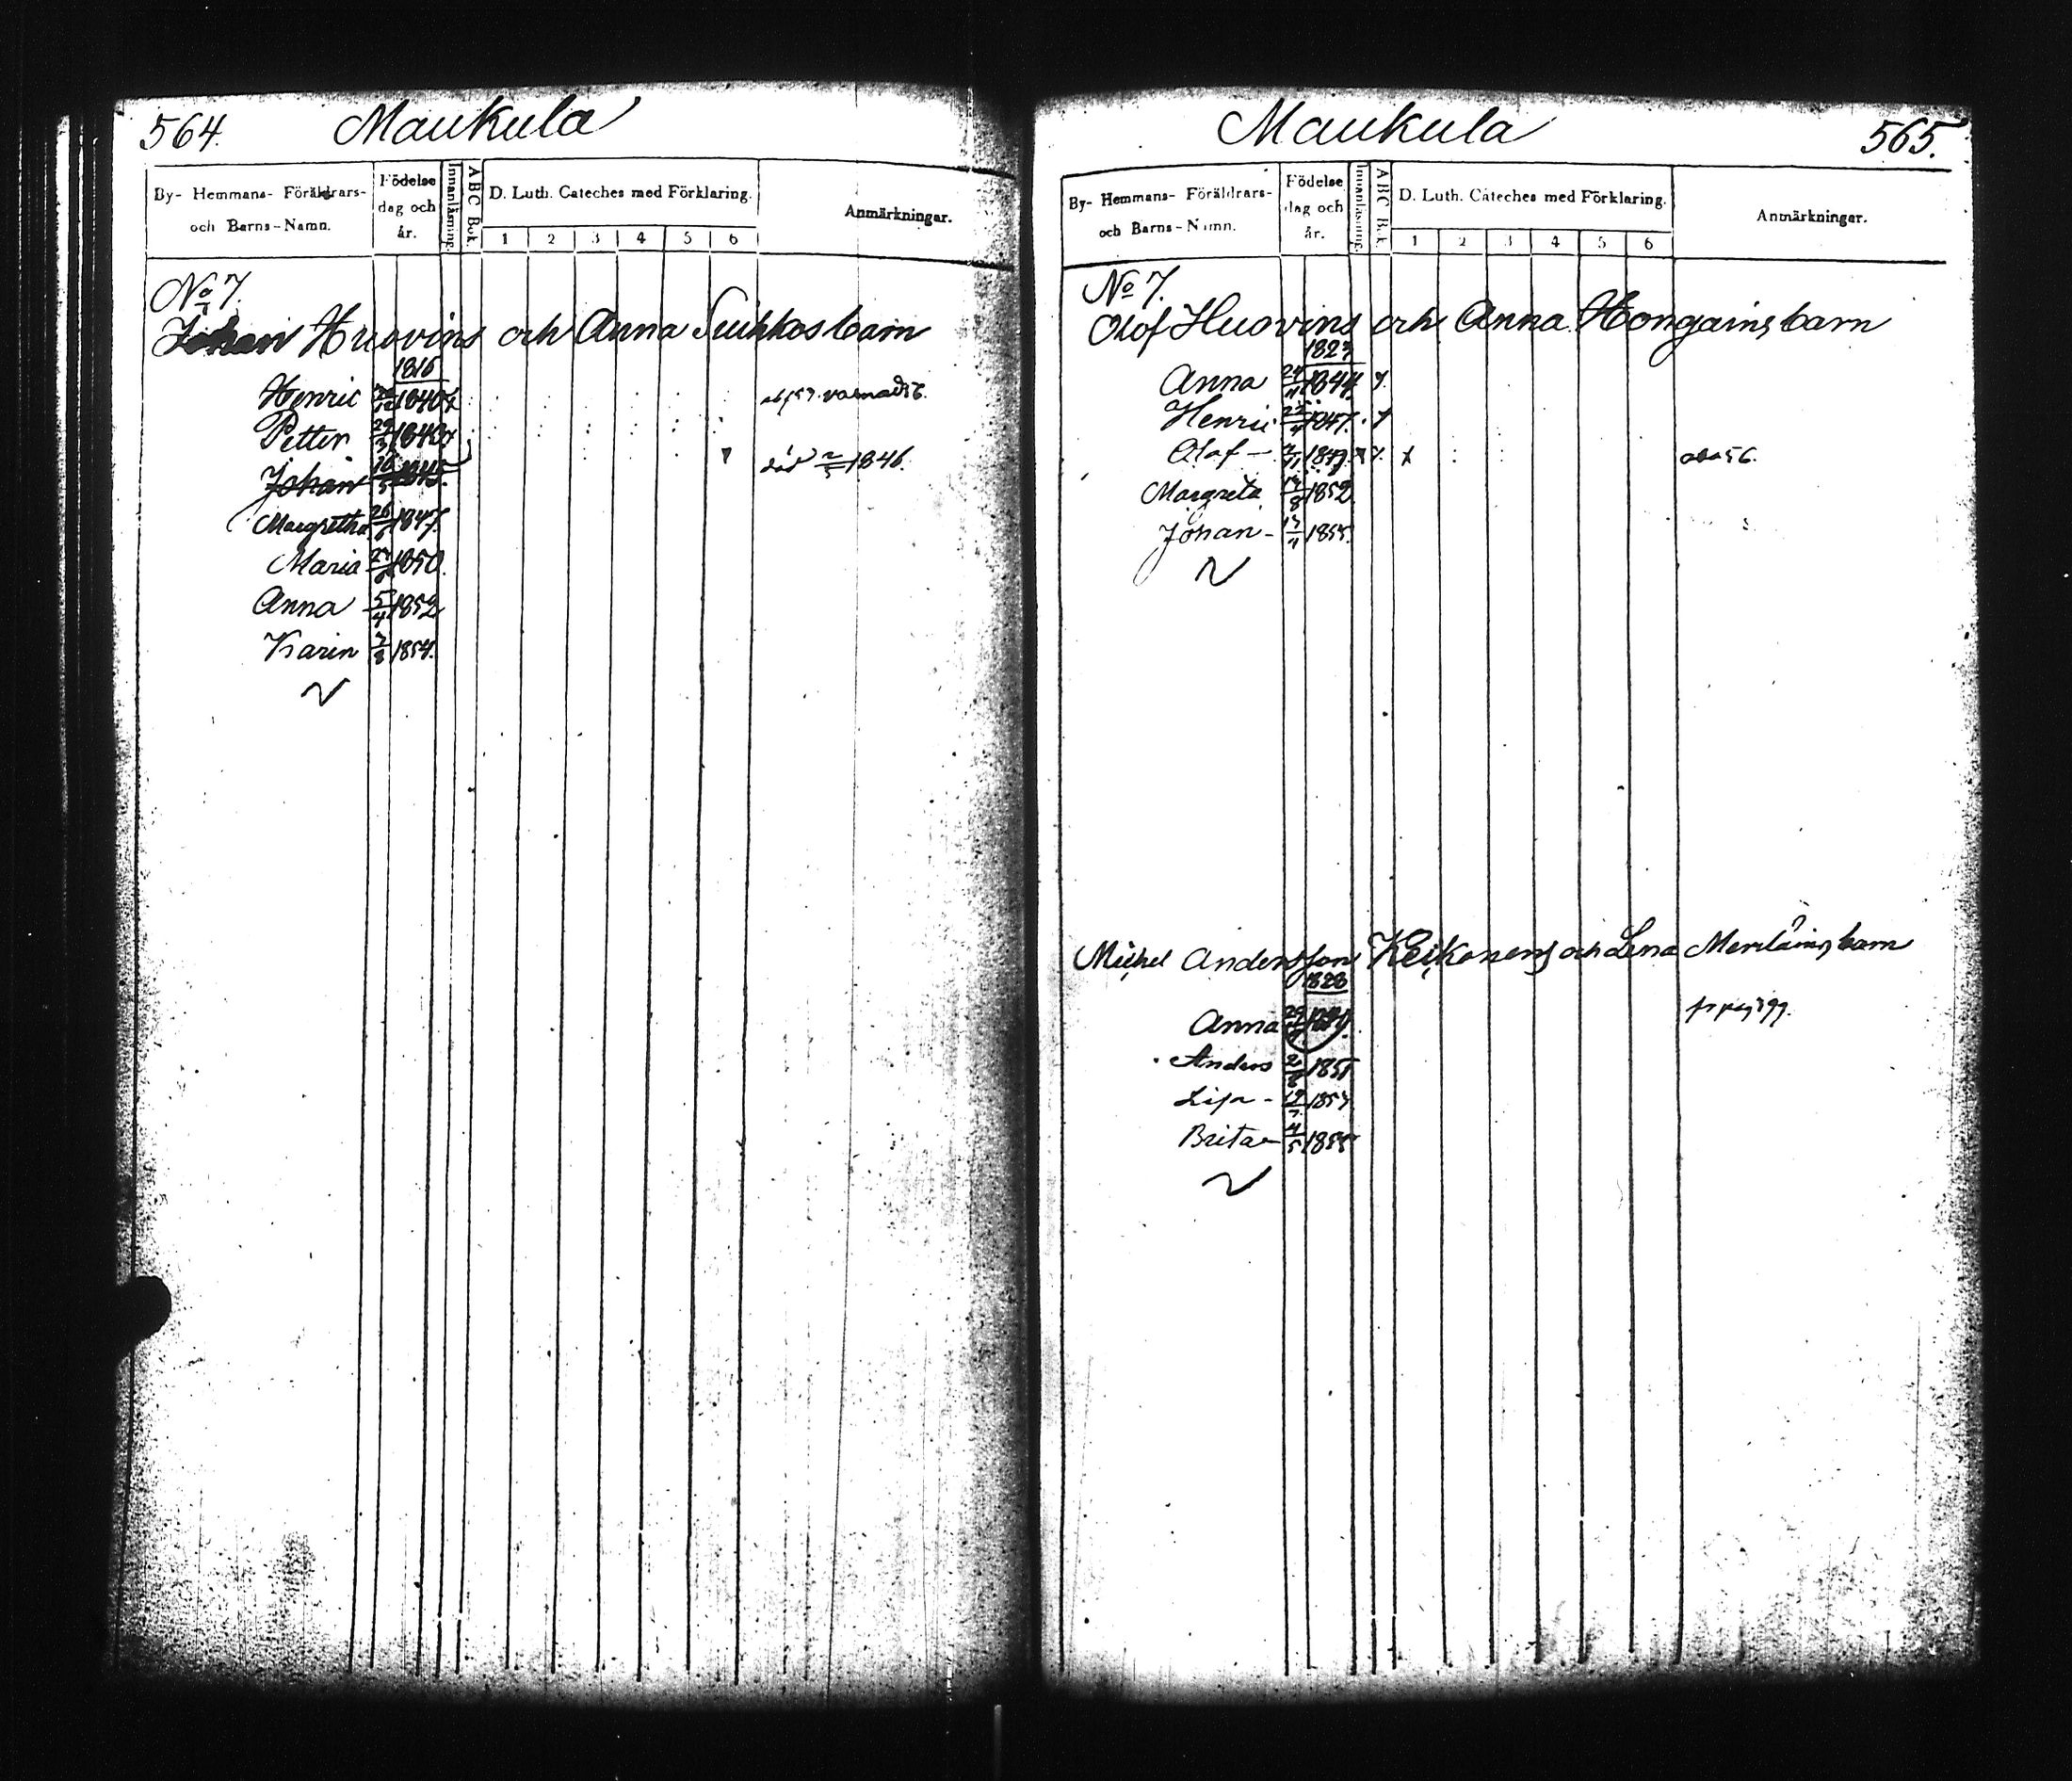 564. Maukula
By- Hemmans- Föräldrars- och Barns-Namn.
Födelse dag och år.
Innanläsning.
A B C Bok.
D. Luth. Cateches med Förklaring.
1 2 3 4 5 6
Anmärkningar.
No 7.
Johan Huovins och Anna Suikkos barn
1816
Henric 1840
Petter 29/3 1843
Johan 1845 död 1846.
Margretha 26/6 1847.
Maria 1850.
Anna 5/4 1852
Karin 7/8 1854.
Maukula 565.
By- Hemmans- Föräldrars- och Barns-Namn.
Födelse dag och år.
Innanläsning.
A B C Bok.
D. Luth. Cateches med Förklaring.
1 2 3 4 5 6
Anmärkningar.
No 7.
Olof Huovins och Anna Hongains barn
1823
Anna 24/11 1844.
Henric 1847.
Olof - 1849.
Margreta 1852.
Johan - 1855.
Michel Andersson Keikonens och Lena Meriläins barn
1828
Anna
Anders 2/8 1851
Lisa - 1853
Brita - 4/5 1855